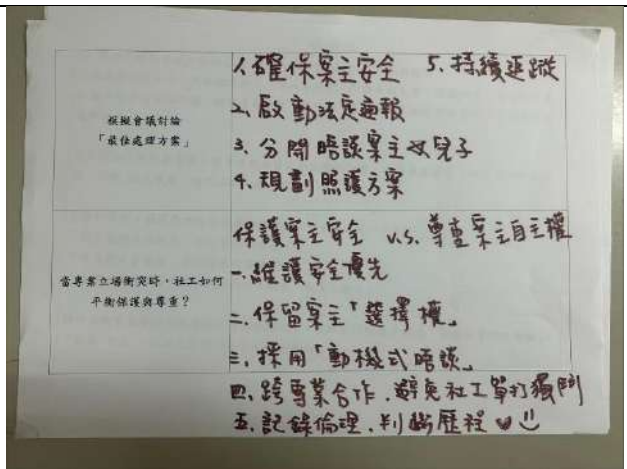 模擬會議討論
「最佳處理方案」
1. 確保案主安全 5. 持續追蹤
2. 啟動法定通報
3. 分開晤談案主及兒子
4. 規劃照護方案
當專業立場衝突時，社工如何
平衡保護與尊重？
保護案主安全 v.s. 尊重案主自主權
一. 維護安全優先
二. 保留案主「選擇權」
三. 採用「動機式晤談」
四. 跨專業合作，避免社工單打獨鬥
五. 記錄倫理，判斷歷程